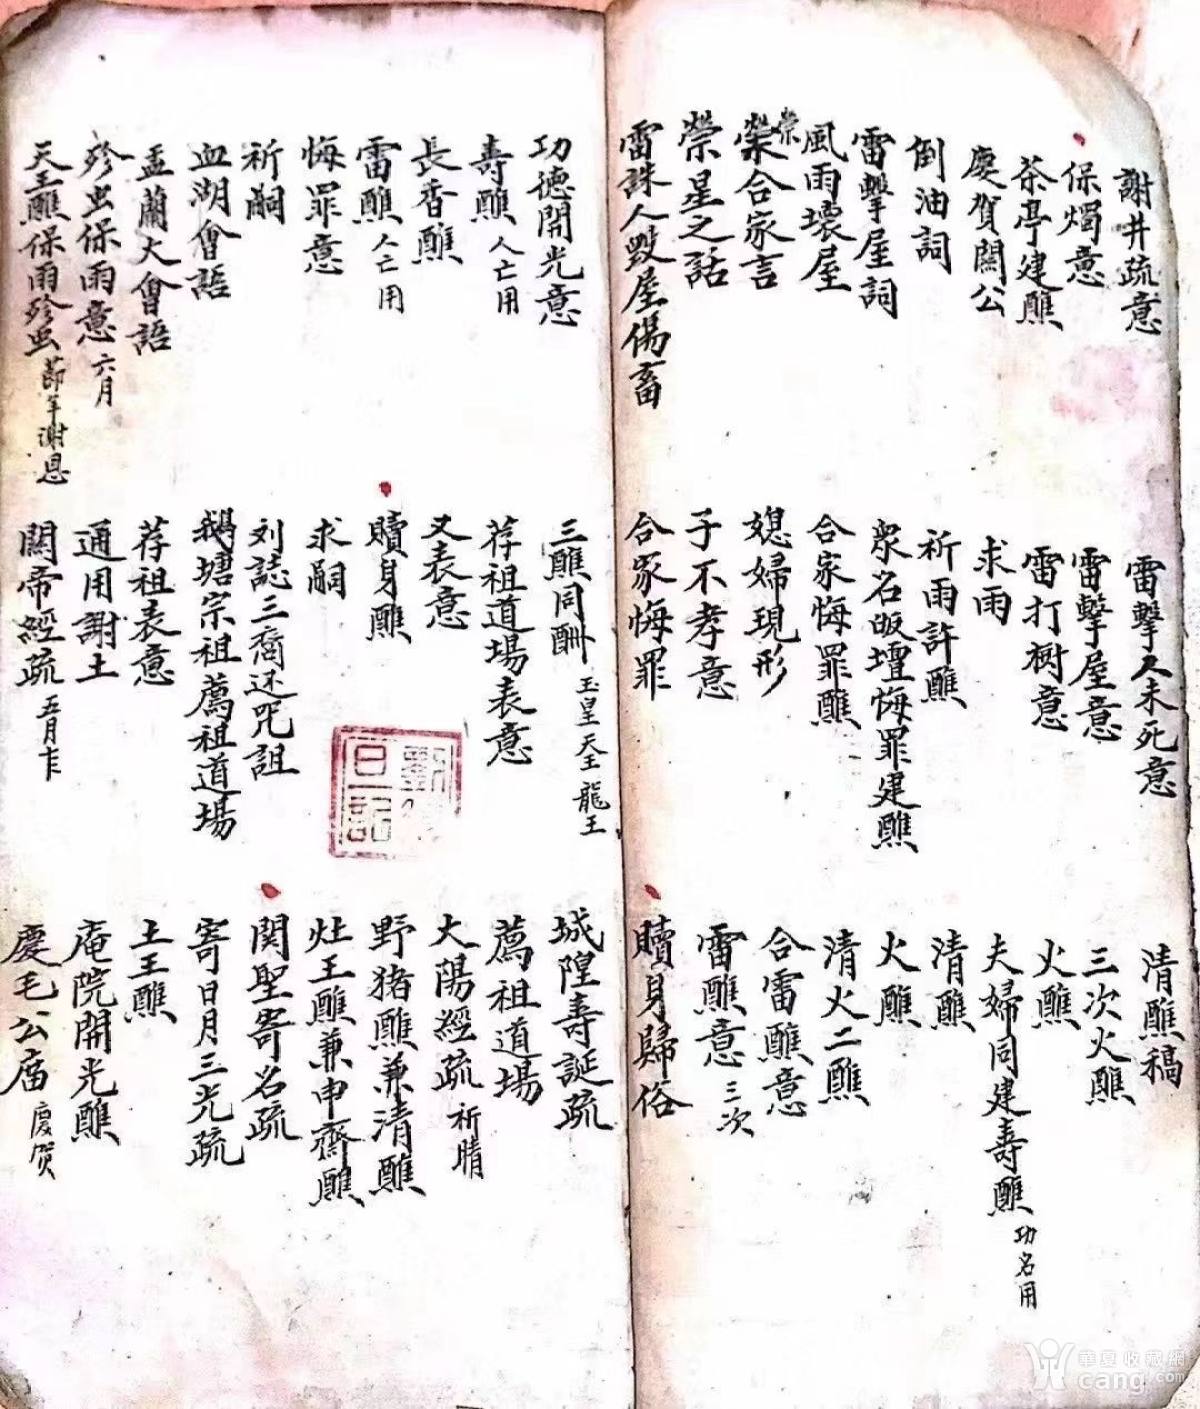 謝井疏意
保燭意
茶亭建醮
慶賀關公
倒油詞
雷擊屋詞
風雨壞屋
禜合家言
禜星之話
雷誅人毀屋傷畜
雷擊人未死意
雷擊屋意
雷打樹意
求雨
祈雨許醮
眾名皈壇悔罪建醮
合家悔罪醮
媳婦現形
子不孝意
合家悔罪
清醮稿
三次火醮
火醮
夫婦同建壽醮 功名用
清醮
火醮
清火二醮
合雷醮意
雷醮意 三次
贖身歸俗
功德開光意
壽醮 人亡用
長香醮
雷醮 人亡用
悔罪意
祈嗣
血湖會語
盂蘭大會語
殄虫保雨意 六月
天王醮保雨殄虫 節年謝恩
三醮同酬 玉皇 天王 龍王
荐祖道場表意
又表意
贖身醮
求嗣
刘誌三裔还咒詛
鵝塘宗祖薦祖道場
荐祖表意
通用謝土
關帝經疏 五月
城隍壽誕疏
薦祖道場
太陽經疏 祈晴
野猪醮兼清醮
灶王醮兼申齋醮
関聖寄名疏
寄日月三光疏
土王醮
庵院開光醮
慶毛公庙 慶贺
劉
日記
華夏收藏網
cang.com